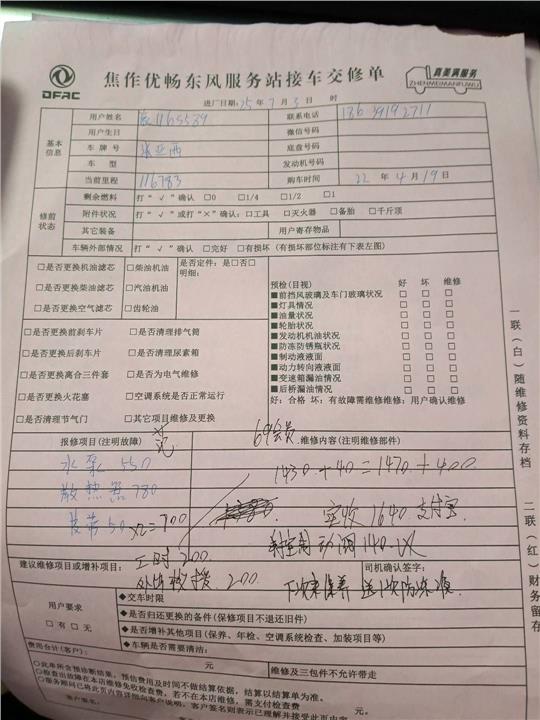 DFAC
焦作优畅东风服务站接车交修单
真美满服务
ZHENMEIMANFUWU
进厂日期:25年7月3日 时
基本信息
用户姓名 1165539 联系电话 18639192711
用户生日 微信号码
车牌号 底盘号码
车型 发动机号码
当前里程 116783 购车时间 22年4月19日
修前状态
剩余燃料 打“√”确认 □0 □1/4 □1/2 □1
附件状况 打“√”或打“×”确认:□工具 □灭火器 □备胎 □千斤顶
其它装备 用户寄存物品
车辆外部情况 打“√”确认 □完好 □有损坏(有损坏部位标注有下表左图)
□是否更换机油滤芯 □柴油机油 是否定件:是□否□
明细:
□是否更换柴油滤芯 □汽油机油
□是否更换空气滤芯 □齿轮油
预检(目视) 好 坏 维修
■前挡风玻璃及车门玻璃状况 □ □ □
■灯具情况 □ □ □
■油量状况 □ □ □
■轮胎状况 □ □ □
■发动机机油状况 □ □ □
■防冻防锈瓶状况 □ □ □
■制动液液面 □ □ □
■动力转向液液面 □ □ □
■变速箱漏油情况 □ □ □
■后桥漏油情况 □ □ □
好:合格 坏:有故障需维修维修:用户确认维修
□是否更换前刹车片 □是否清理排气筒
□是否更换后刹车片 □是否清理尿素箱
□是否更换离合三件套 □是否为电气维修
□是否更换火花塞 □空调系统是否正常运行
□是否清理节气门 □其它项目维修及更换
报修项目(注明故障) 69会员 维修内容(注明维修部件)
水泵 550 1430+40=1470+400
散热器 780
皮带 50 x2=700 实收1640 支付宝
工时 200
外出救援 200 下次来保养 送1次防冻液
建议维修项目或增补项目: 司机确认签字:
用户要求
□有 □无
◆交车时限
◆是否归还更换的备件(保修项目不退还旧件)
◆是否增补其他项目(保养、年检、空调系统检查、加装项目等)
◆车辆是否需要清洁:
费用合计(客户): 元 维修及三包件不允许带走
○此单所含预诊断结果,预估费用及时间不做结算依据,结算以结算单为准。
○检查出故障在本店维修免收检查费,若不在本店维修,需支付检查费 元
一联(白)随维修资料存档
二联(红)财务留存